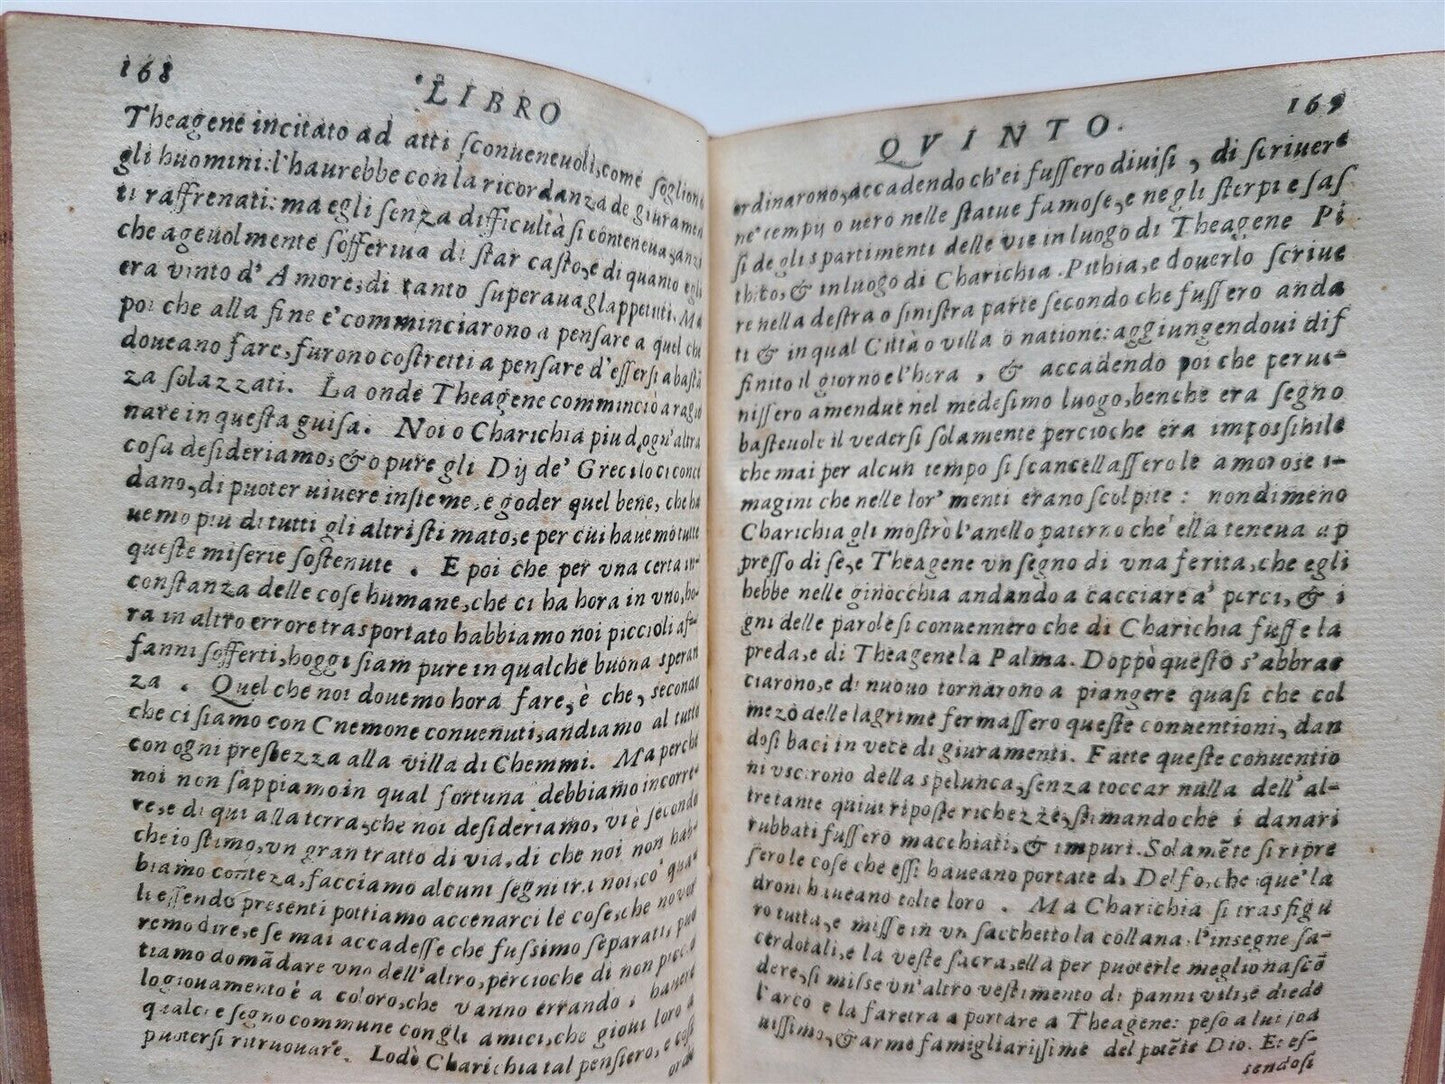 168
LIBRO
Theagene incitato ad atti ſconueneuoli, come ſogliono
gli huomini: l'haurebbe con la ricordanza de giuramen
ti raffrenati: ma egli ſenza difficultà ſi conteneua, anzi
che ageuolmente ſofferiua di ſtar caſto, e di quanto egli
era vinto d' Amore, di tanto ſuperaua gl appetiti. Ma
poi che alla fine e' comminciarono a penſare a quel che
doueano fare, furono coſtretti a penſare d'eſſerſi a baſtā
za ſolazzati. La onde Theagene comminciò a ragio
nare in queſta guiſa. Noi o Charichia piu d ogn'altra
coſa deſideriamo, & o pure gli Dij de' Greci lo ci conce
dano, di puoter uiuere inſieme, e goder quel bene, che ha
uemo piu di tutti gli altri ſti mato, e per cui hauemo tutte
queſte miſerie ſoſtenute . E poi che per vna certa in-
conſtanza delle coſe humane, che ci ha hora in vno, ho-
ra in altro errore traſportato habbiamo noi piccioli af-
fanni ſofferti, hoggi ſiam pure in qualche buona speran
za . Quel che noi douemo hora fare, è che, secondo
che ci ſiamo con Cnemone conuenuti, andiamo al tutto
con ogni preſtezza alla villa di Chemmi. Ma perche
noi non ſappiamo in qual fortuna debbiamo incorre-
re, e di qui alla terra, che noi deſideriamo, vi è ſecondo
che io ſtimo, vn gran tratto di via, di che noi non hab-
biamo conteza, facciamo alcuni ſegni tra noi, co' qua
li eſſendo preſenti pottiamo accenarci le coſe, che no vor
remo dire, e ſe mai accadeſſe che fuſſimo ſeparati, puo
tiamo domādare vno dell'altro, percioche di non picco
lo giouamento è a coloro, che vanno errando i hauere
qualche ſegno commune con gli amici, che gioui loro a
puoterſi ritruouare. Lodò Charichia tal penſiero, e coſi
ordi
QVINTO.
169
ordinarono, accadendo ch'ei fuſſero diuiſi , di ſcriuere
ne' tempij o uero nelle ſtatue famoſe, e ne gli ſterpi e ſaſ
ſi de gli spartimenti delle vie in luogo di Theagene Pi
thio, & in luogo di Charichia . Pithia, e douerlo ſcriue
re nella deſtra o ſiniſtra parte ſecondo che fuſſero anda
ti & in qual Città o villa o natione: aggiungendoui dif
finito il giorno e l'hora , & accadendo poi che peru-
niſſero amendue nel medeſimo luogo, benche era ſegno
baſteuole il vederſi ſolamente percioche era impoſſibile
che mai per alcun tempo ſi ſcancellaſſero le amoroſe i-
magini che nelle lor' menti erano ſcolpite : nondimeno
Charichia gli moſtrò l'anello paterno che' ella teneua ap
preſſo di ſe, e Theagene vn ſegno di vna ferita, che egli
hebbe nelle ginocchia andando a cacciare a' porci, & i
gni delle parole ſi conuennero che di Charichia fuſſe la
preda, e di Theagene la Palma. Doppò queſto s'abbrac
ciarono, e di nuouo tornarono a piangere quaſi che col
mezò delle lagrime fermaſſero queſte conuentioni, dan
doſi baci in vece di giuramenti. Fatte queſte conuentio
ni vſcirono della ſpelunca, ſenza toccar nulla dell' al-
tretante quiui ripoſte richezze, ſtimando che i danari
rubbati fuſſero macchiati, & impuri. Solamēte ſi ripre
ſero le coſe che eſſi haueano portate da Delfo, che que' la
droni haueano tolte loro . Ma Charichia ſi traſfigu
ro tutta, e miſſe in vn ſacchetto la collana. l'inſegne ſa-
cerdotali, e la veſte ſacra, ella per puoterle meglio naſcō
dere, ſi miſſe vn' altro veſtimento di panni vili, e diede
l'arco e la faretra a portare a Theagene: peſo a lui ſoa
uiſſimo, & arme famigliariſſime del potēte Dio. Et eſ-
sendoſi